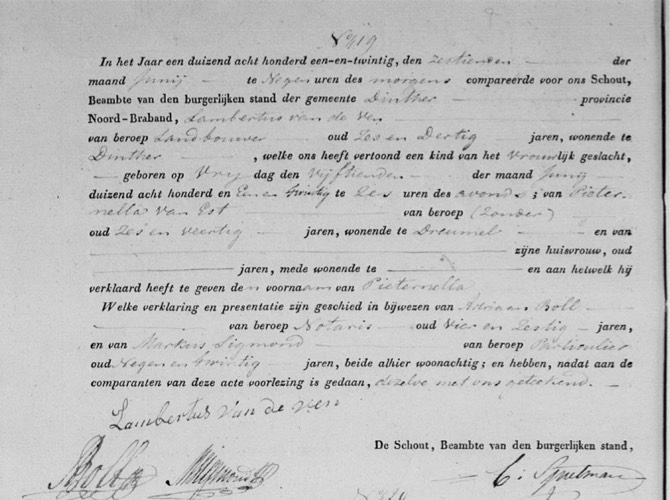 N 19
In het Jaar een duizend acht honderd een-en-twintig, den zestienden der
maand Junij te Negen uren des morgens compareerde voor ons Schout,
Beambte van den burgerlijken stand der gemeente Dinther provincie
Noord-Braband, Lambertus van de Ven
van beroep Landbouwer oud Zes en Dertig jaren, wonende te
Dinther, welke ons heeft vertoond een kind van het Vrouwlijk geslacht,
geboren op Vrij dag den Vijftienden der maand Junij
duizend acht honderd en Een en twintig te Zes uren des avonds; van Pieter-
nella van Est van beroep (Zonder)
oud Zes en veertig jaren, wonende te Dreumel en van
zijne huisvrouw, oud
jaren, mede wonende te en aan hetwelk hij
verklaard heeft te geven den voornaam van Pieternella
Welke verklaring en presentatie zijn geschied in bijwezen van Adriaan Boll
van beroep Notaris oud Vier en Zestig jaren,
en van Markus Sigmond van beroep Particulier
oud Negen en twintig jaren, beide alhier woonachtig; en hebben, nadat aan de
comparanten van deze acte voorlezing is gedaan, dezelve met ons geteekend.
Lambertus van de ven
De Schout, Beambte van den burgerlijken stand,
ABoll MSigmond C. Spielman